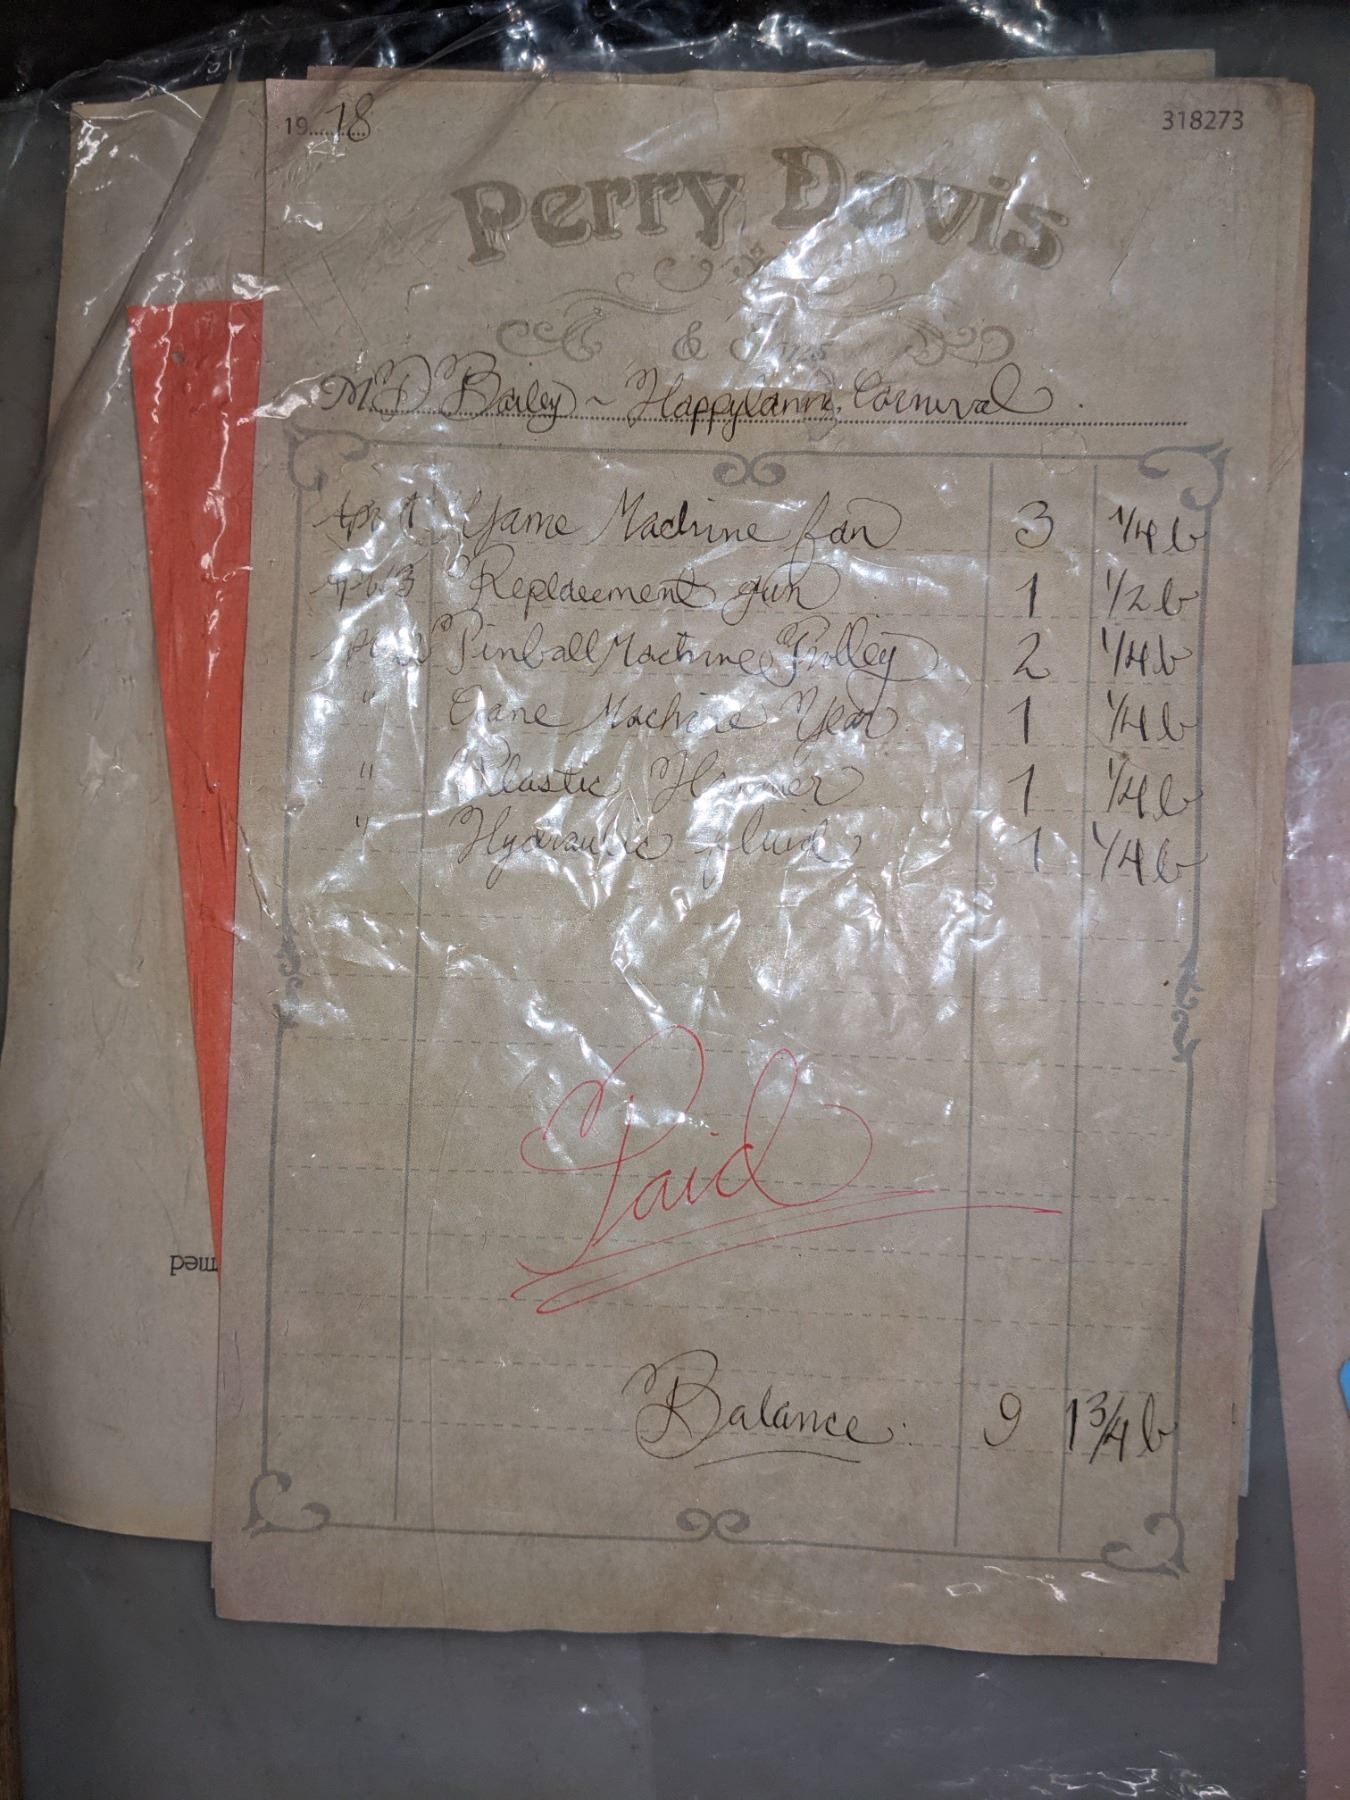 19.....78
318273
Perry Davis
& Sons
M.D Bailey ~ Happyland Carnival
Game Machine fan 3 1/4 b
Replacement gun 1 1/2 b
Pinball Machine Trolley 2 1/4 b
" Crane Machine Year 1 1/4 b
" Plastic Hammer 1 1/4 b
" Hydraulic fluid 1 1/4 b
Paid
med
Balance. 9 1 3/4 b